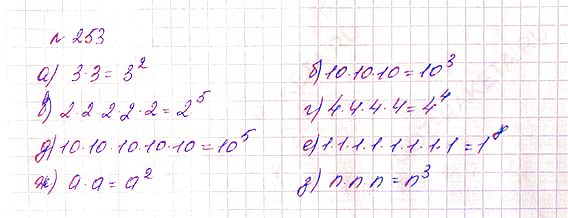 № 253
а) 3·3 = 3²
б) 10·10·10 = 10³
в) 2·2·2·2·2 = 2⁵
г) 4·4·4·4 = 4⁴
д) 10·10·10·10·10 = 10⁵
е) 1·1·1·1·1·1·1·1 = 1⁸
ж) a·a = a²
з) n·n·n = n³